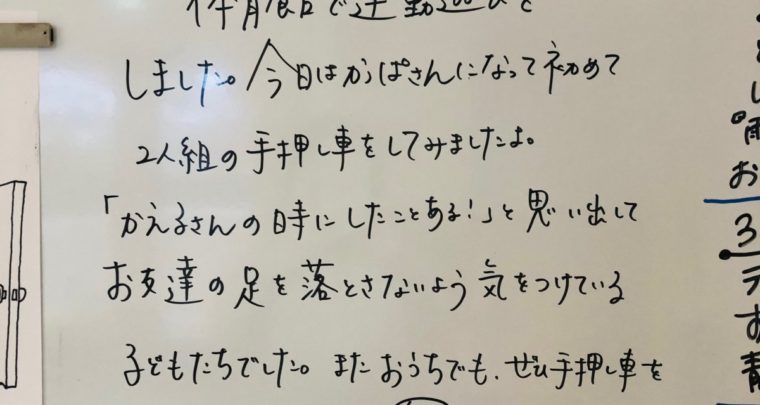 体育館で運動遊びを
しました。今日はかっぱさんになって初めて
2人組の手押し車をしてみましたよ。
「かえるさんの時にしたことある!」と思い出して
お友達の足を落とさないよう気をつけている
子どもたちでした。またおうちでも、ぜひ手押し車を